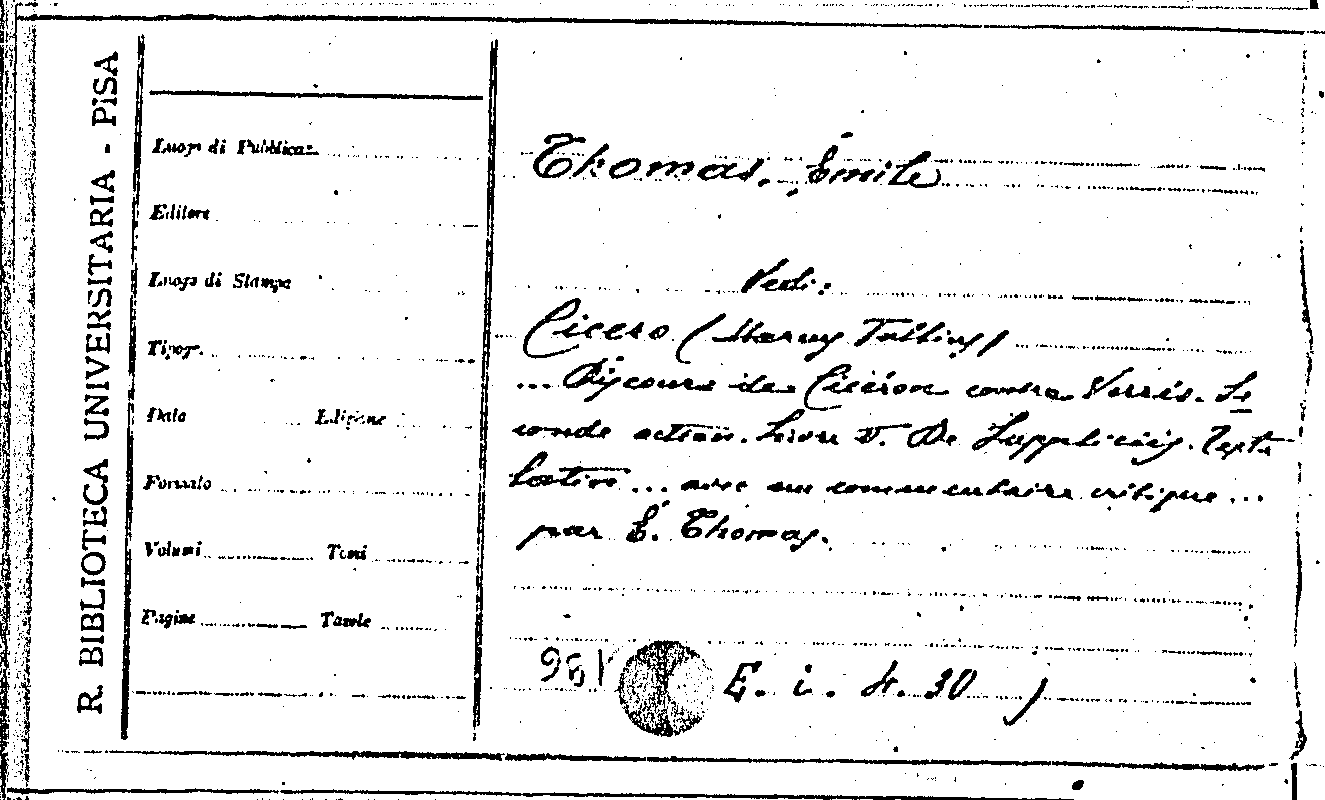 R. BIBLIOTECA UNIVERSITARIA - PISA
Luogo di Pubblicaz.
Editore
Luogo di Stampa
Tipogr.
Data Edizione
Formato
Volumi Tomi
Pagine Tavole
Thomas, Émile
Vedi:
Cicero (Marcus Tullius)
... Discours de Cicéron contre Verrès. Se
conde action. Livre V. De Suppliciis. Texte
latin ... avec un commentaire critique ...
par É. Thomas.
E. i. 4. 30